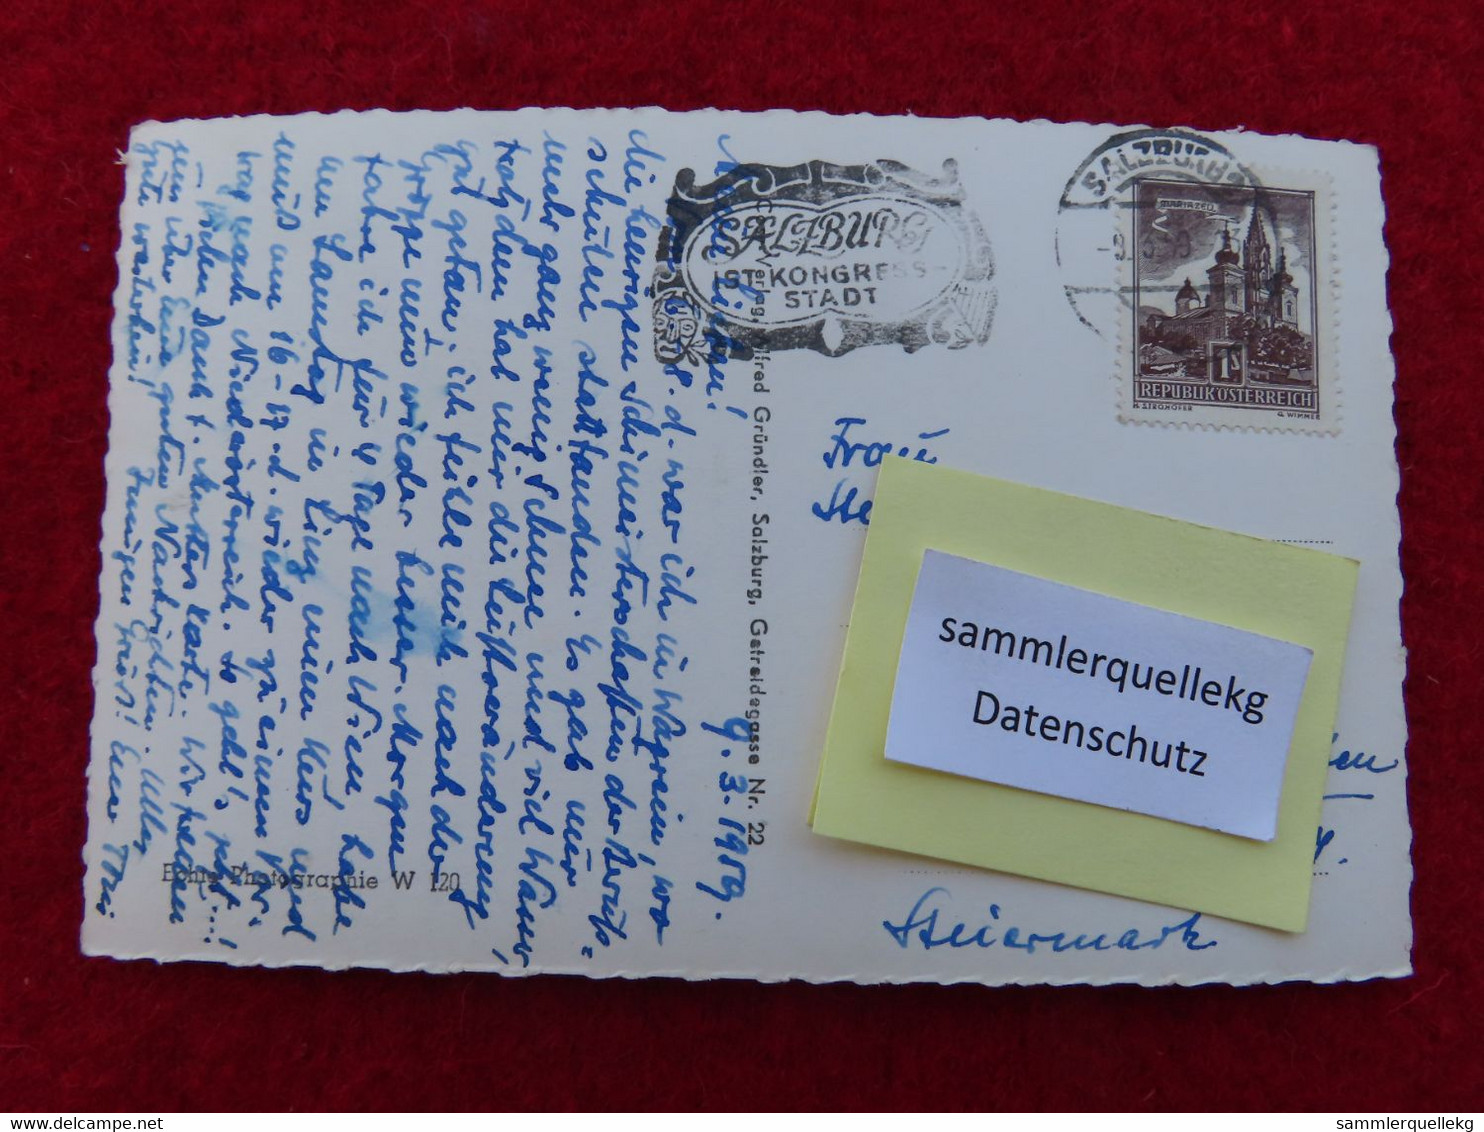 9.3.1959.
Meine Lieben!
d. war ich in Wagrein, wo
die heurigen Schimeisterschaften der Berufs-
schulen stattfanden. Es gab nur
mehr ganz wenig Schnee und viel Wasser,
trotzdem hat mir die Luftveränderung
gut getan, ich fühle mich nach der
Grippe nun wieder besser. Morgen
fahre ich für 4 Tage nach Wien, habe
am Samstag in Linz einen Kurs und
muß am 16-17. d. wieder zu einem
nach Niederösterreich. So geht's,
Vielen Dank f. Muttis Karte. Wir freuen
uns über Eure guten Nachrichten. Alles
Gute weiterhin! Innigen Gruß! Eure
Echte Photographie W 120
C Verlag, Alfred Gründler, Salzburg, Getreidegasse Nr. 22
SALZBURG
IST KONGRESS-
STADT
SALZBURG 2
-9.3.59
MARIAZELL
1S
REPUBLIK ÖSTERREICH
H. STROHOFER G. WIMMER
Frau
Ste
sammlerquellekg
Datenschutz
Steiermark
sammlerquellekg